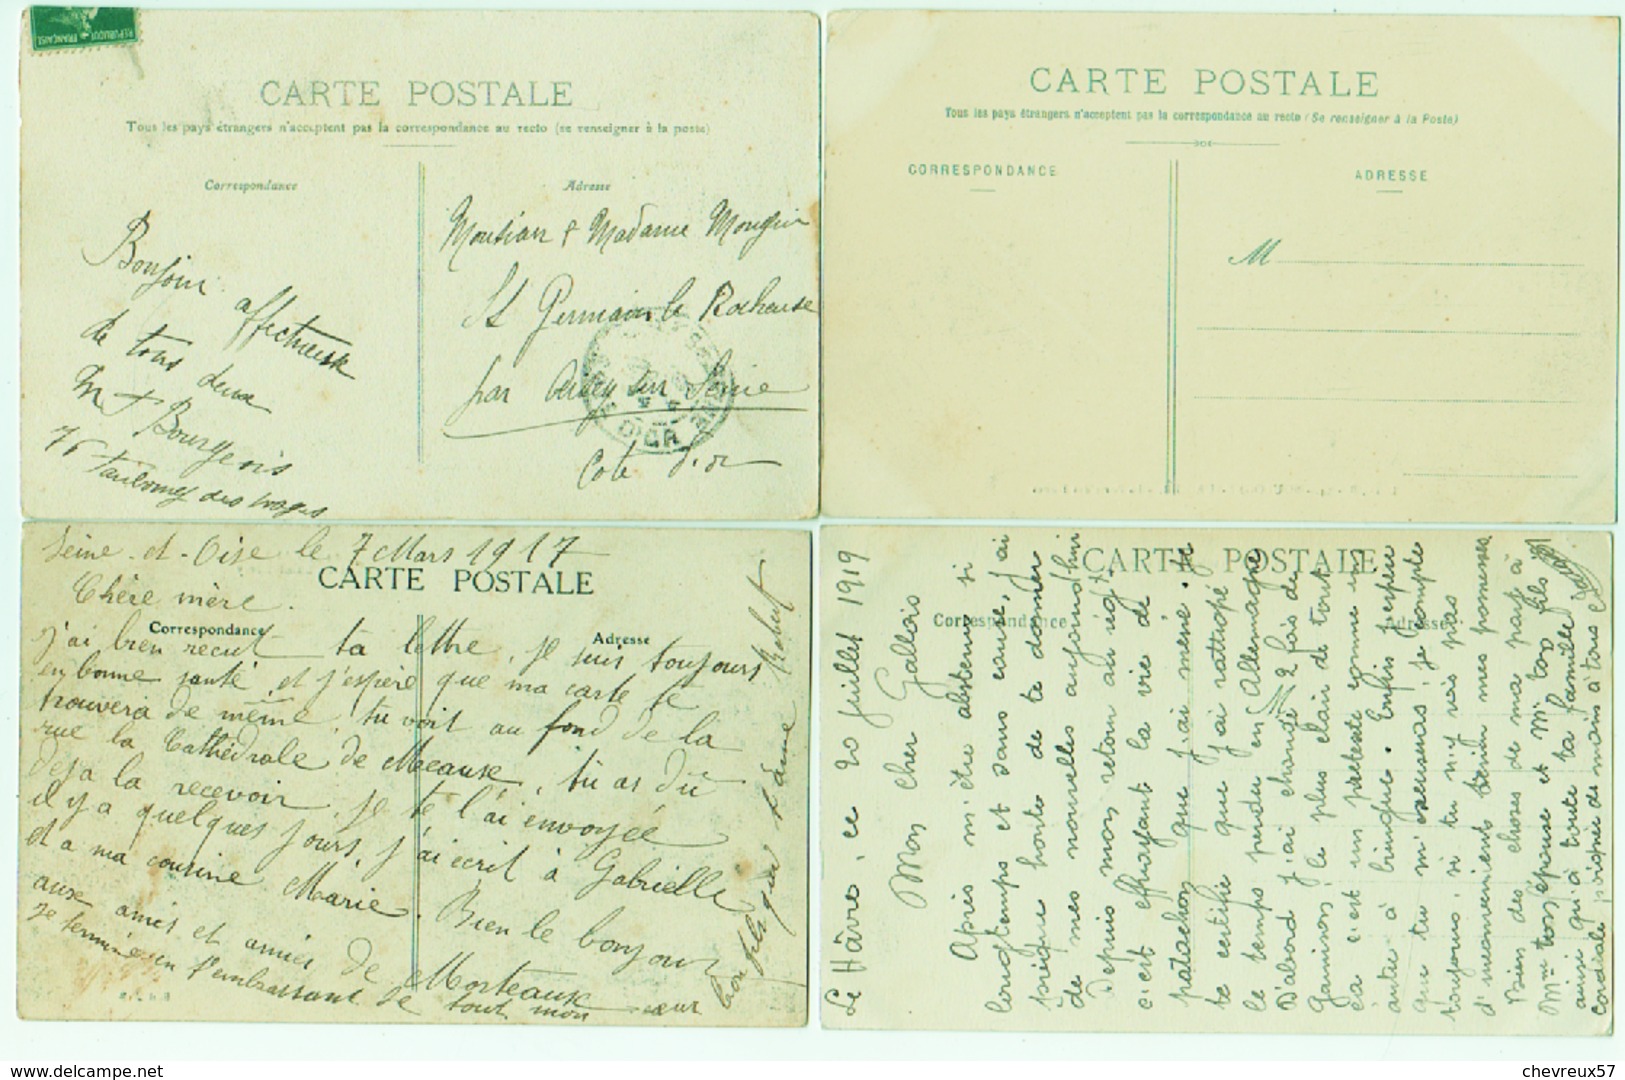 REPUBLIQUE FRANÇAISE
CARTE POSTALE
Tous les pays étrangers n'acceptent pas la correspondance au recto (se renseigner à la poste)
Correspondance
Adresse
Bonjour
affectueux
de tous deux
M + Bourgeois
76 faubourg des
Monsieur & Madame Mougin
St Germain le Rocheuse
par Aisey sur Seine
Cote d'or
D'OR
CARTE POSTALE
Tous les pays étrangers n'acceptent pas la correspondance au recto (Se renseigner à la Poste)
CORRESPONDANCE
ADRESSE
M
Seine-et-Oise le 7 Mars 1917
CARTE POSTALE
Chère mère.
Correspondance
Adresse
j'ai bien recut ta lettre, je suis toujours
en bonne santé et j'espère que ma carte te
trouvera de même, tu voit au fond de la
rue la Cathédrale de Meaux, tu as dû
deja la recevoir, je te l'ai envoyée
il y a quelques jours, j'ai ecrit à Gabrielle
et a ma cousine Marie. Bien le bonjour
aux amis et amies de Morteaux
je termine en t'embrassant de tout mon cœur
ton fils qui t'aime Robert
CARTE POSTALE
Correspondance
Adresse
Le Hâvre, ce 20 juillet 1919
Mon cher Gallois
Après m'être abstenu si
longtemps et sans cause, j'ai
presque honte de te donner
de mes nouvelles aujourd'hui
Depuis mon retour au régt
c'est effrayant la vie de
patachon que j'ai mené. Je
te certifie que j'ai rattrapé
le temps perdu en Allemagne
D'abord j'ai changé 2 fois de
garnison, le plus clair de tout
ça c'est un prétexte comme un
autre à bringue. Enfin j'espère
que tu m'excuseras, je compte
toujours, si tu n'y vois pas
d'inconvénients tenir mes promesses
Bien des choses de ma part à
Mme ton épouse et Mr ton fils
ainsi qu'à toute ta famille
cordiale poignée de mains à tous
delcampe.net
chevreux57